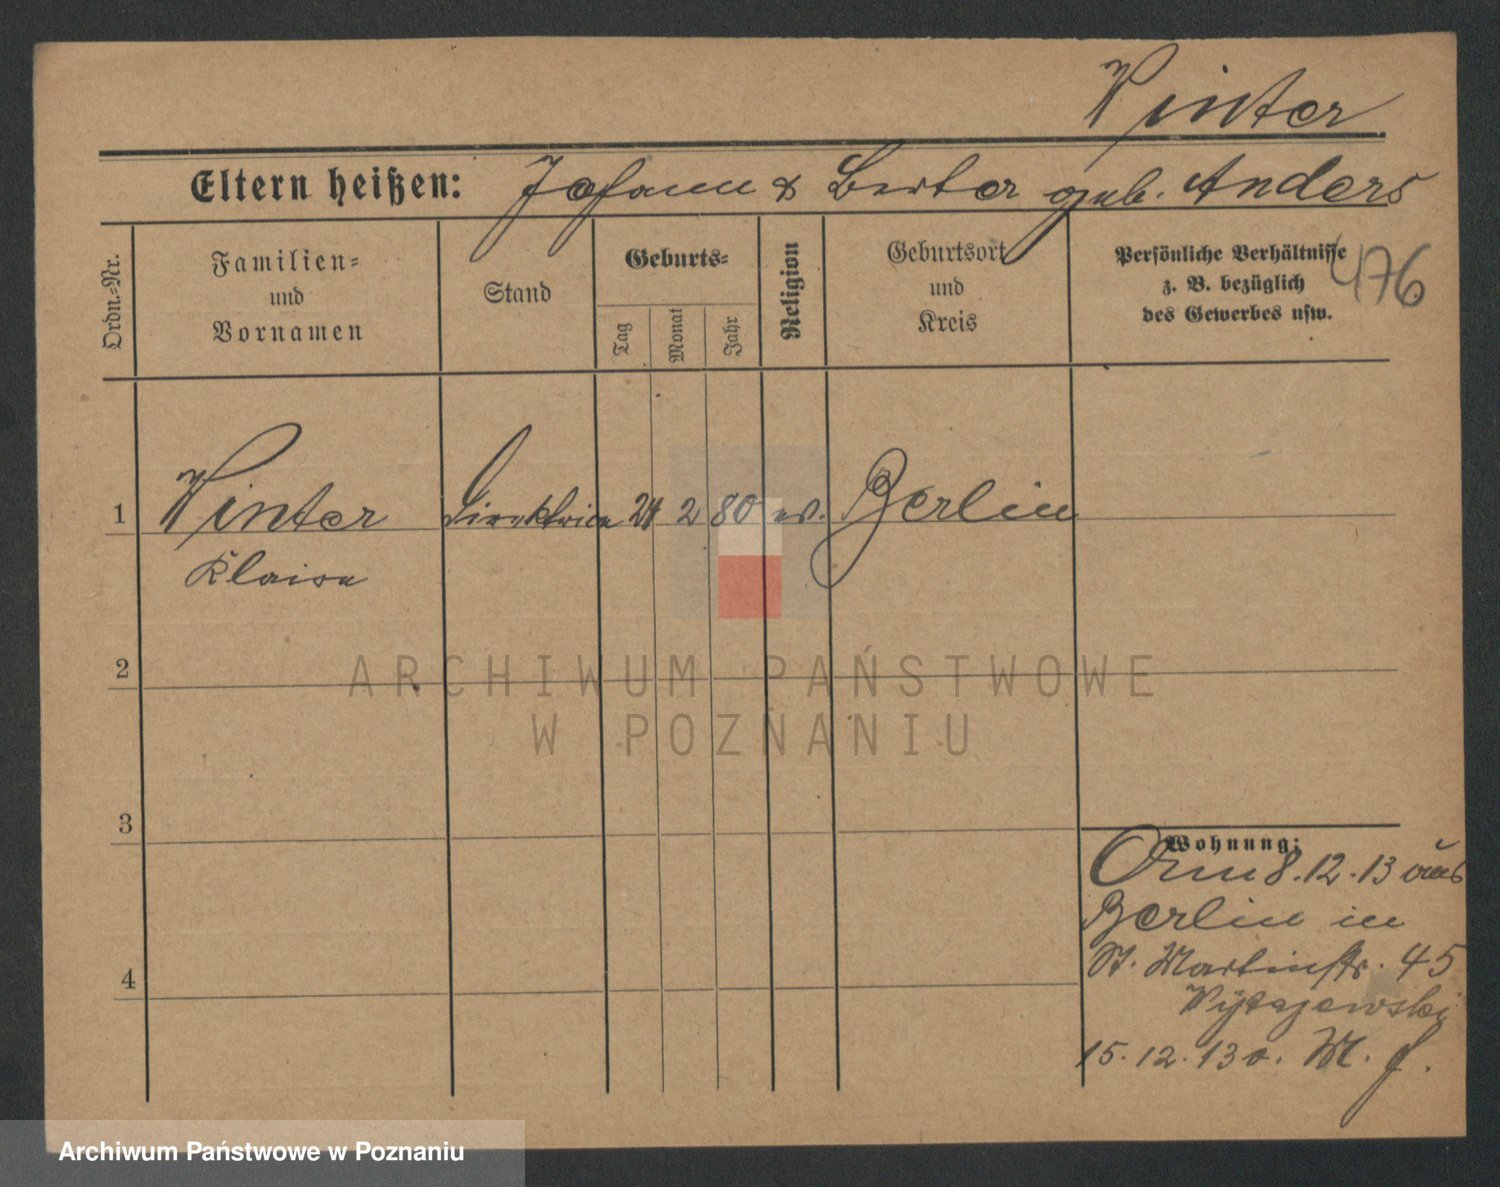 Winter
Eltern heißen: Johann & Berta geb. Anders
Ordn.-Nr.
Familien-
und
Vornamen
Stand
Geburts-
Tag
Monat
Jahr
Religion
Geburtsort
und
Kreis
Persönliche Verhältnisse
z. B. bezüglich
des Gewerbes usw.
476
1 Winter Direktrice 24 2 80 ev. Berlin
2
3
4
Wohnung:
8.12.13 aus
Berlin in
St. Martinstr. 45
15.12.13 v. M. f.
ARCHIWUM PAŃSTWOWE
W POZNANIU
Archiwum Państwowe w Poznaniu